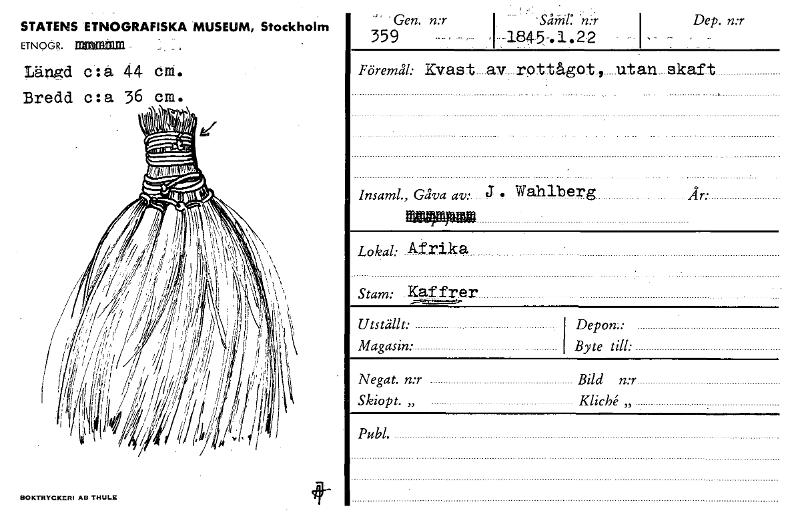 STATENS ETNOGRAFISKA MUSEUM, Stockholm
ETNOGR.
Längd c:a 44 cm.
Bredd c:a 36 cm.
BOKTRYCKERI AB THULE
Gen. n:r Saml. n:r Dep. n:r
359 1845.1.22
Föremål: Kvast av rottågot, utan skaft
Insaml., Gåva av: J. Wahlberg År:
Lokal: Afrika
Stam: Kaffrer
Utställt: Depon.:
Magasin: Byte till:
Negat. n:r Bild n:r
Skiopt. „ Kliché „
Publ.